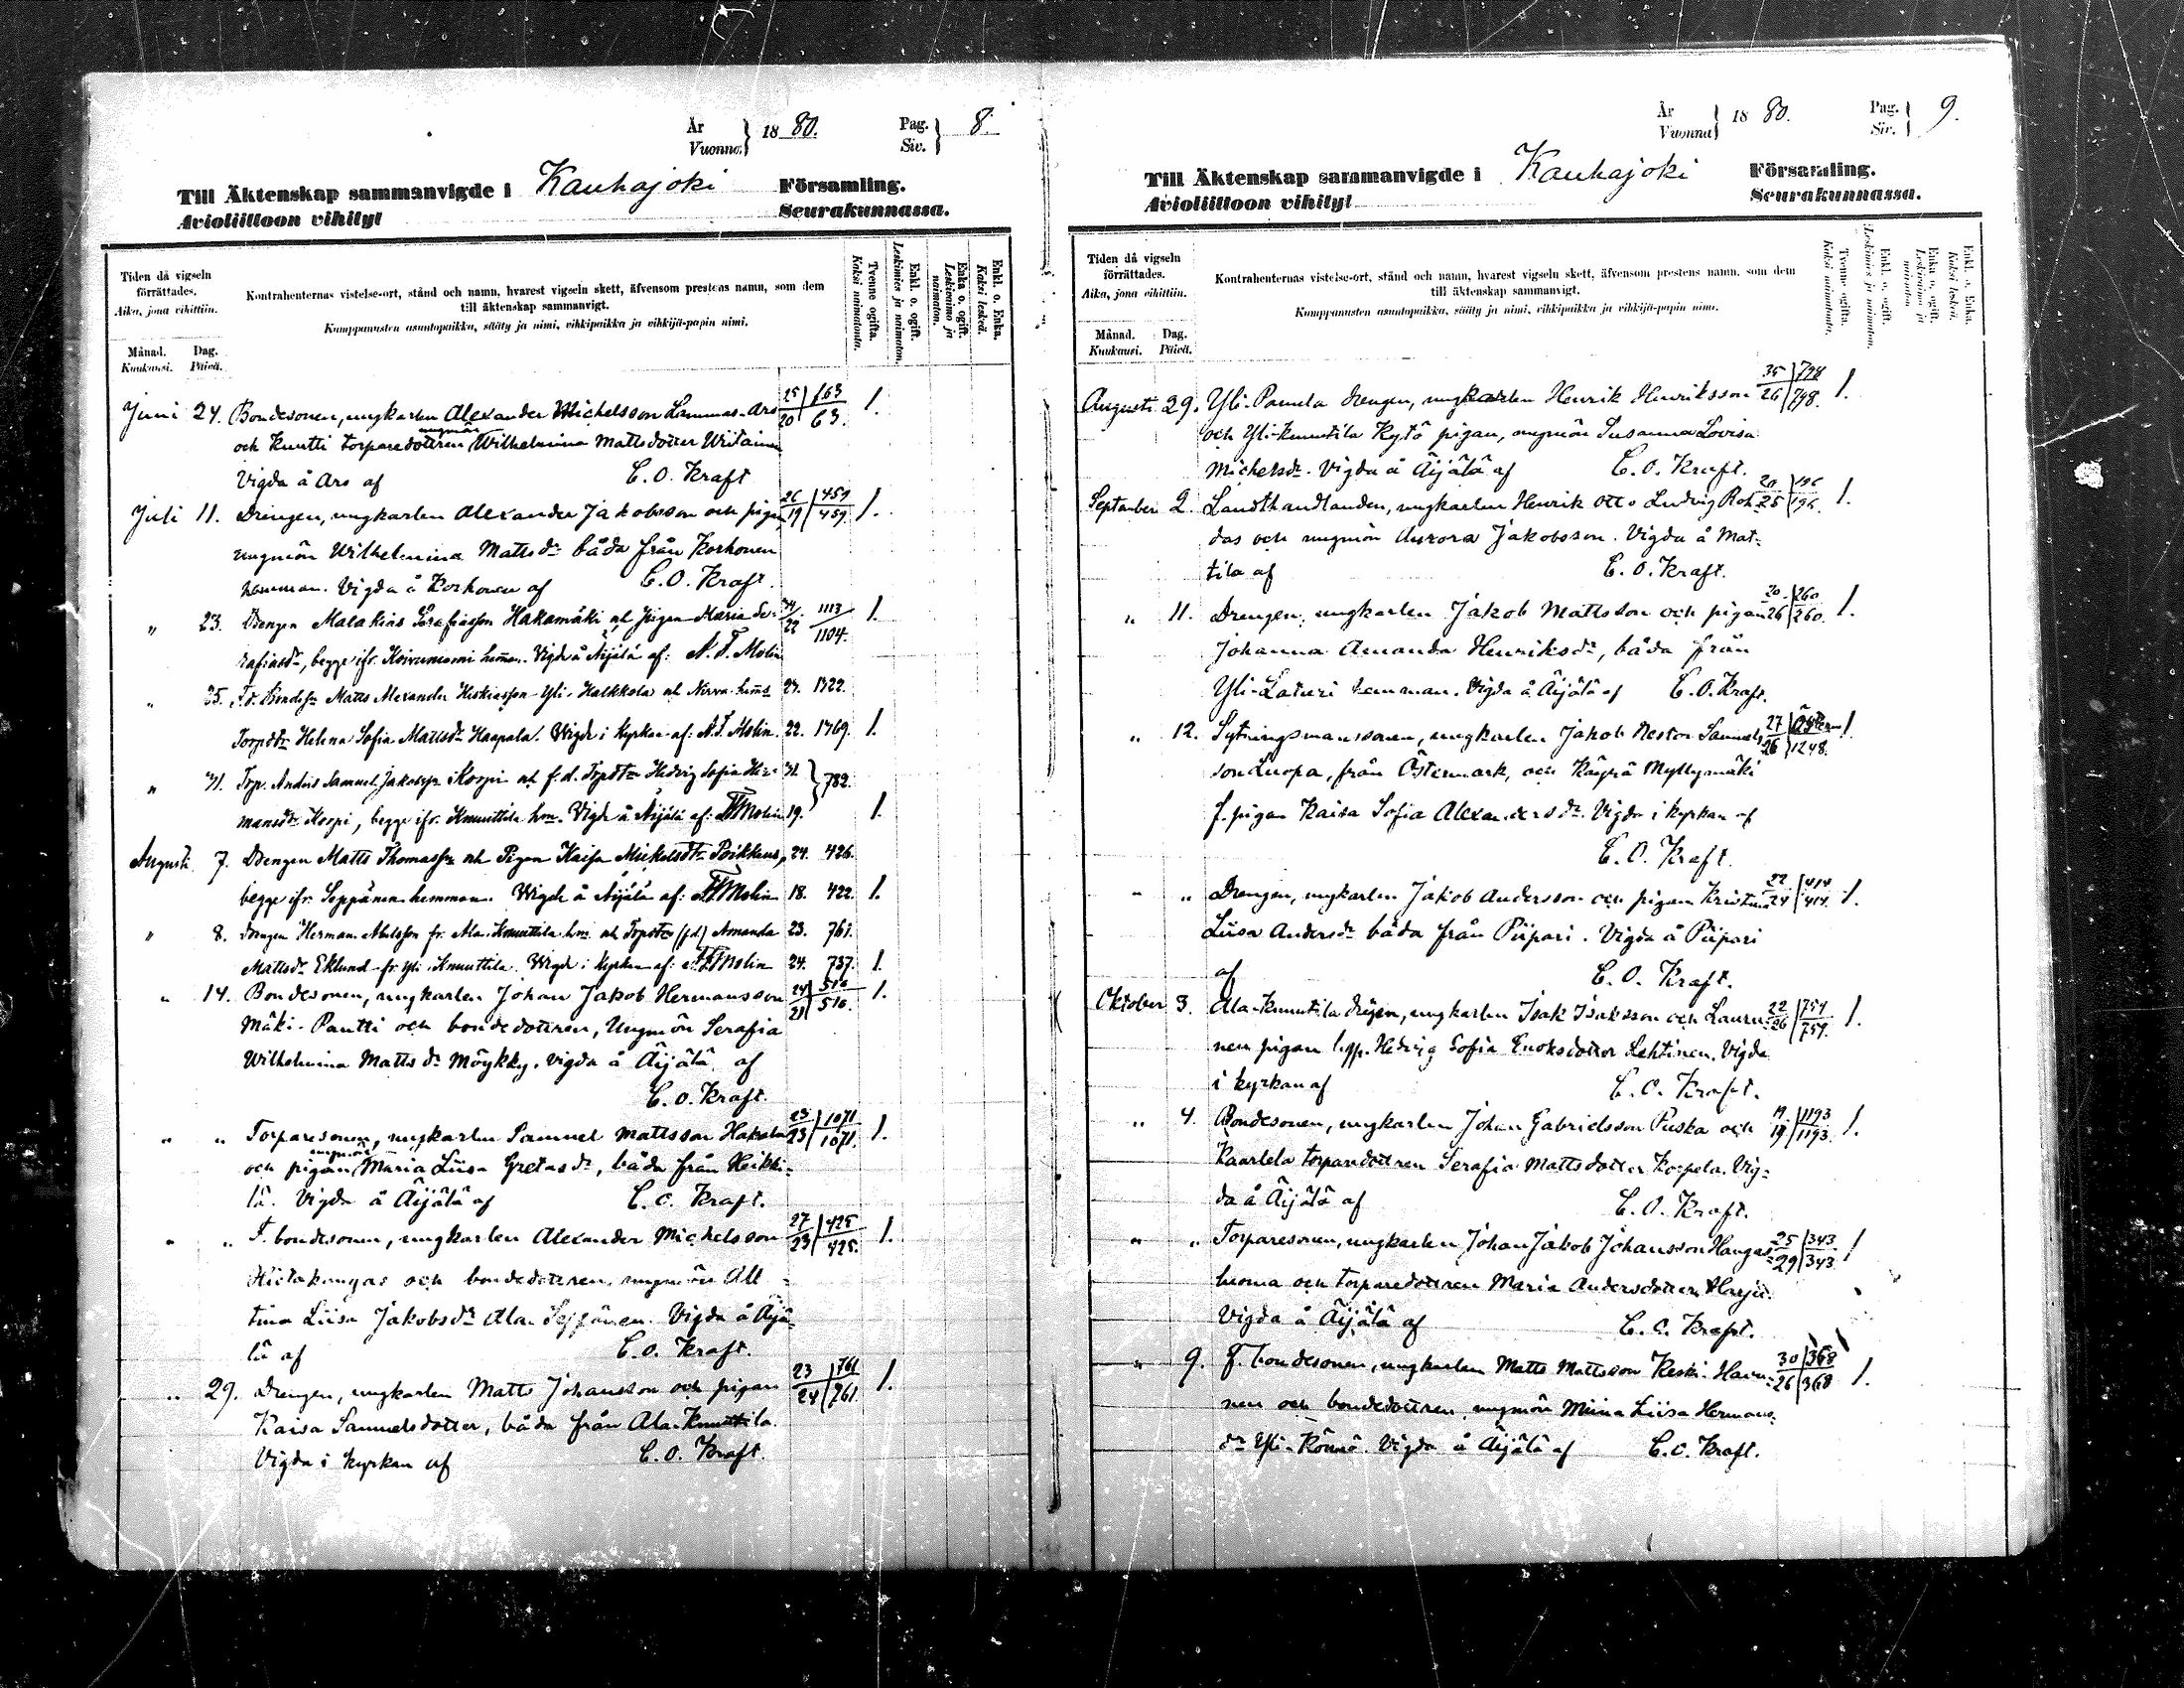 År Vuonna } 18 80. Pag. Siv. } 8.
Till Äktenskap sammanvigde i Kauhajoki Församling.
Avioliittoon vihityt Seurakunnassa.
Tiden då vigseln förrättades.
Aika, jona vihittiin.
Månad. Kuukausi.
Dag. Päivä.
Kontrahenternas vistelse-ort, stånd och namn, hvarest vigseln skett, äfvensom prestens namn, som dem
till äktenskap sammanvigt.
Kumppanusten asuntopaikka, sääty ja nimi, vihkipaikka ja vihkijä-papin nimi.
Tvenne ogifta. Kaksi naimatonta.
Enkl. o. ogift. Leskimies ja naimaton.
Enka o. ogift. Leskivaimo ja naimaton.
Enkl. o. Enka. Kaksi leskeä.
Juni 24. Bondesonen, ungkarlen Alexander Michelsson Lammas-Aro 25/20 63/63. 1.
och Knutti torparedottren ungmön Wilhelmina Mattsdotter Wiitainen
Vigda å Aro af C. O. Kraft
Juli 11. Drengen, ungkarlen Alexander Jakobsson och pigan 26/19 459/459 1.
ungmön Wilhelmina Mattsdr båda från Korhonen
hemman. Vigda å Korhonen af C. O. Kraft.
" 23. Drengen Malakias Serafiasson Hakamäki och pigan Maria Se- 24/22 1113/1104. 1.
rafiasdr, begge ifr. Koivumemi hemm. Vigde å Äijälä af: A. T. Molin
" 25. F.d. Bondesn Matts Alexander Heskiasson Yli-Halkkola och Nirva hems 24. 1322.
Torpdtr Helena Sofia Mattsdr Haapala. Wigde i Kyrkan af: A. T. Molin. 22. 1769. 1.
" 31. Torp. Anders Samuel Jakobsson Kospi och f.d. Torpdtr Hedvig Sofia Her- 31. } 782.
mansdtr Kospi, begge ifr. Knuuttila hm. Wigde å Äijälä af: A T Molin 19. 1.
Augusti 7. Drengen Matts Thomasson och Pigan Kaisa Mickelsdtr Poikkeus, 24. 426.
begge ifr. Seppänen hemman. Wigde å Äijälä af: A T Molin 18. 422. 1.
" 8. Drengen Herman Abelsson fr. Ala-Knuuttila hm. och Torpdtr (f.d.) Amanda 23. 761.
Mattsdr Eklund fr. Yli Knuuttila. Wigde i Kyrkan af: A T Molin 24. 737. 1.
" 14. Bondesonen, ungkarlen Johan Jakob Hermansson 24/21 516/516. 1.
Mäki-Pantti och bondedottren, Ungmön Serafia
Wilhelmina Matts dr Möykky. Vigda å Äijälä af
C. O. Kraft.
" " Torparesonen, ungkarlen Samuel Mattsson Hakala 23/23 1071/1071 1.
och pigan ungmön Maria Liisa Gretas dr, båda från Heikki-
lä. Vigda å Äijälä af C. O. Kraft.
" " F. bondesonen, ungkarlen Alexander Michelsson 27/23 425/425. 1.
Hietakangas och bondedottren, ungmön All-
tina Liisa Jakobsdr Ala-Seppänen. Vigda å Äijä-
lä af C. O. Kraft.
" 29. Drengen, ungkarlen Matts Johansson och pigan 23/24 761/761. 1.
Kaisa Samuelsdotter, båda från Ala-Knuttila.
Vigda i kyrkan af C. O. Kraft.
År Vuonna } 18 80. Pag. Siv. } 9.
Till Äktenskap sammanvigde i Kauhajoki Församling.
Avioliittoon vihityt Seurakunnassa.
Tiden då vigseln förrättades.
Aika, jona vihittiin.
Månad. Kuukausi.
Dag. Päivä.
Kontrahenternas vistelse-ort, stånd och namn, hvarest vigseln skett, äfvensom prestens namn, som dem
till äktenskap sammanvigt.
Kumppanusten asuntopaikka, sääty ja nimi, vihkipaikka ja vihkijä-papin nimi.
Tvenne ogifta. Kaksi naimatonta.
Enkl. o. ogift. Leskimies ja naimaton.
Enka o. ogift. Leskivaimo ja naimaton.
Enkl. o. Enka. Kaksi leskeä.
Augusti 29. Yli-Panula drengen, ungkarlen Henrik Henriksson 35/26 798/798. 1.
och Yli-Knuutila Kytö pigan, ungmön Susanna Lovisa
Michelsdr. Vigda å Äijälä af C. O. Kraft.
September 2. Landthandlanden, ungkarlen Henrik Otto Ludvig Roh- 20/25 196/196. 1.
das och ungmön Aurora Jakobsson. Vigda å Mat-
tila af C. O. Kraft.
" 11. Drengen, ungkarlen Jakob Mattsson och pigan 20/26 260/260. 1.
Johanna Amanda Henriksdr, båda från
Yli-Laturi hemman. Vigda å Äijälä af C. O. Kraft.
" 12. Sytningsmanssonen, ungkarlen Jakob Nestor Samuels- 27/26 Österm/1248. 1.
son Luopa, från Östermark, och Käyrä Myllymäki
f. pigan Kaisa Sofia Alexandersdr. Vigda i kyrkan af
C. O. Kraft.
" " Drengen, ungkarlen Jakob Andersson och pigan Kristina 22/24 414/414. 1.
Liisa Andersdr båda från Piipari. Vigda å Piipari
af C. O. Kraft.
Oktober 3. Ala-Knuutila drengen, ungkarlen Isak Isaksson och Lauru- 22/26 759/759. 1.
nen pigan Hedvig Sofia Enoksdotter Lehtinen. Vigda
i kyrkan af C. O. Kraft.
" 4. Bondesonen, ungkarlen Johan Gabrielsson Puska och 19/19 1193/1193. 1.
Kaarlela torparedottren Serafia Mattsdotter Korpela. Vig-
da å Äijälä af C. O. Kraft.
" " Torparesonen, ungkarlen Johan Jakob Johansson Hangas- 25/29 343/343 1
luoma och torparedottren Maria Andersdotter Harju.
Vigda å Äijälä af C. O. Kraft.
" 9. F. bondesonen, ungkarlen Matts Mattsson Keski-Havu- 30/26 368/368 1.
nen och bondedottren, ungmön Miina Liisa Hermans-
dr Yli-Könnö. Vigda å Äijälä af C. O. Kraft.